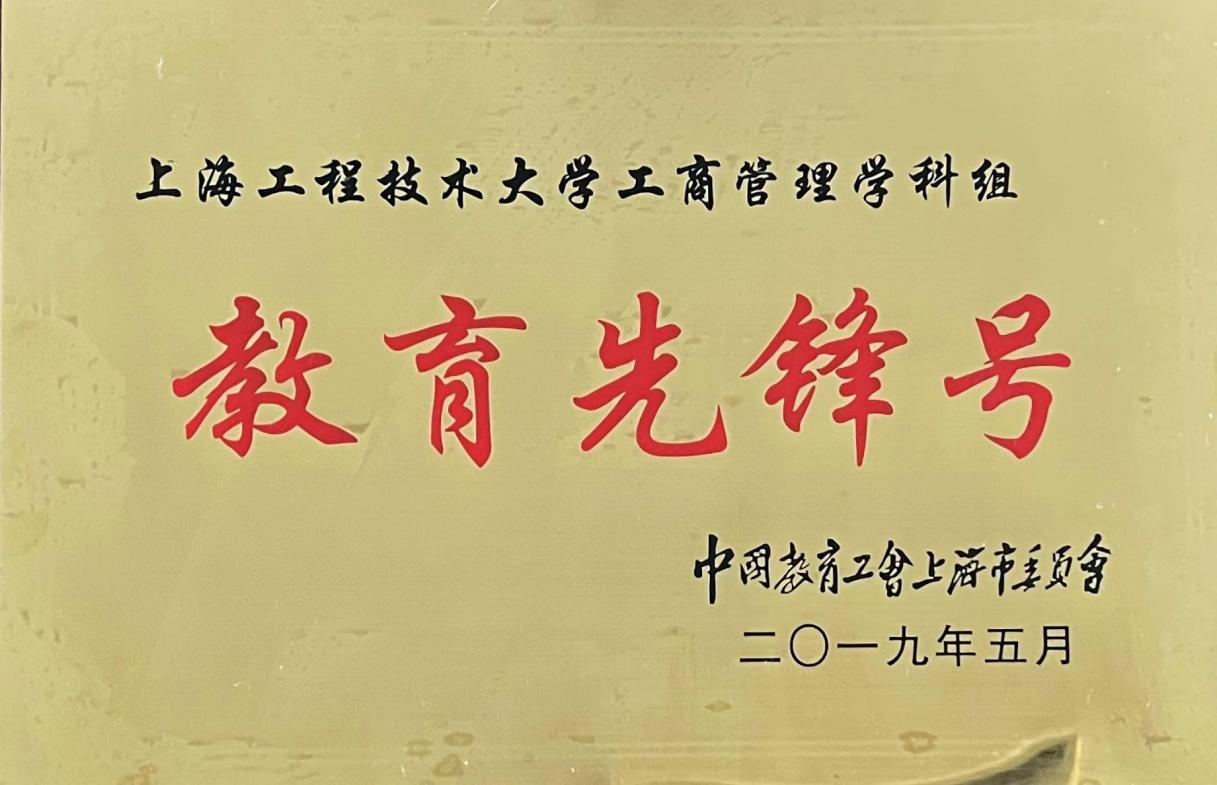 上海工程技术大学工商管理学科组
教育先锋号
中国教育工會上海市委员會
二〇一九年五月